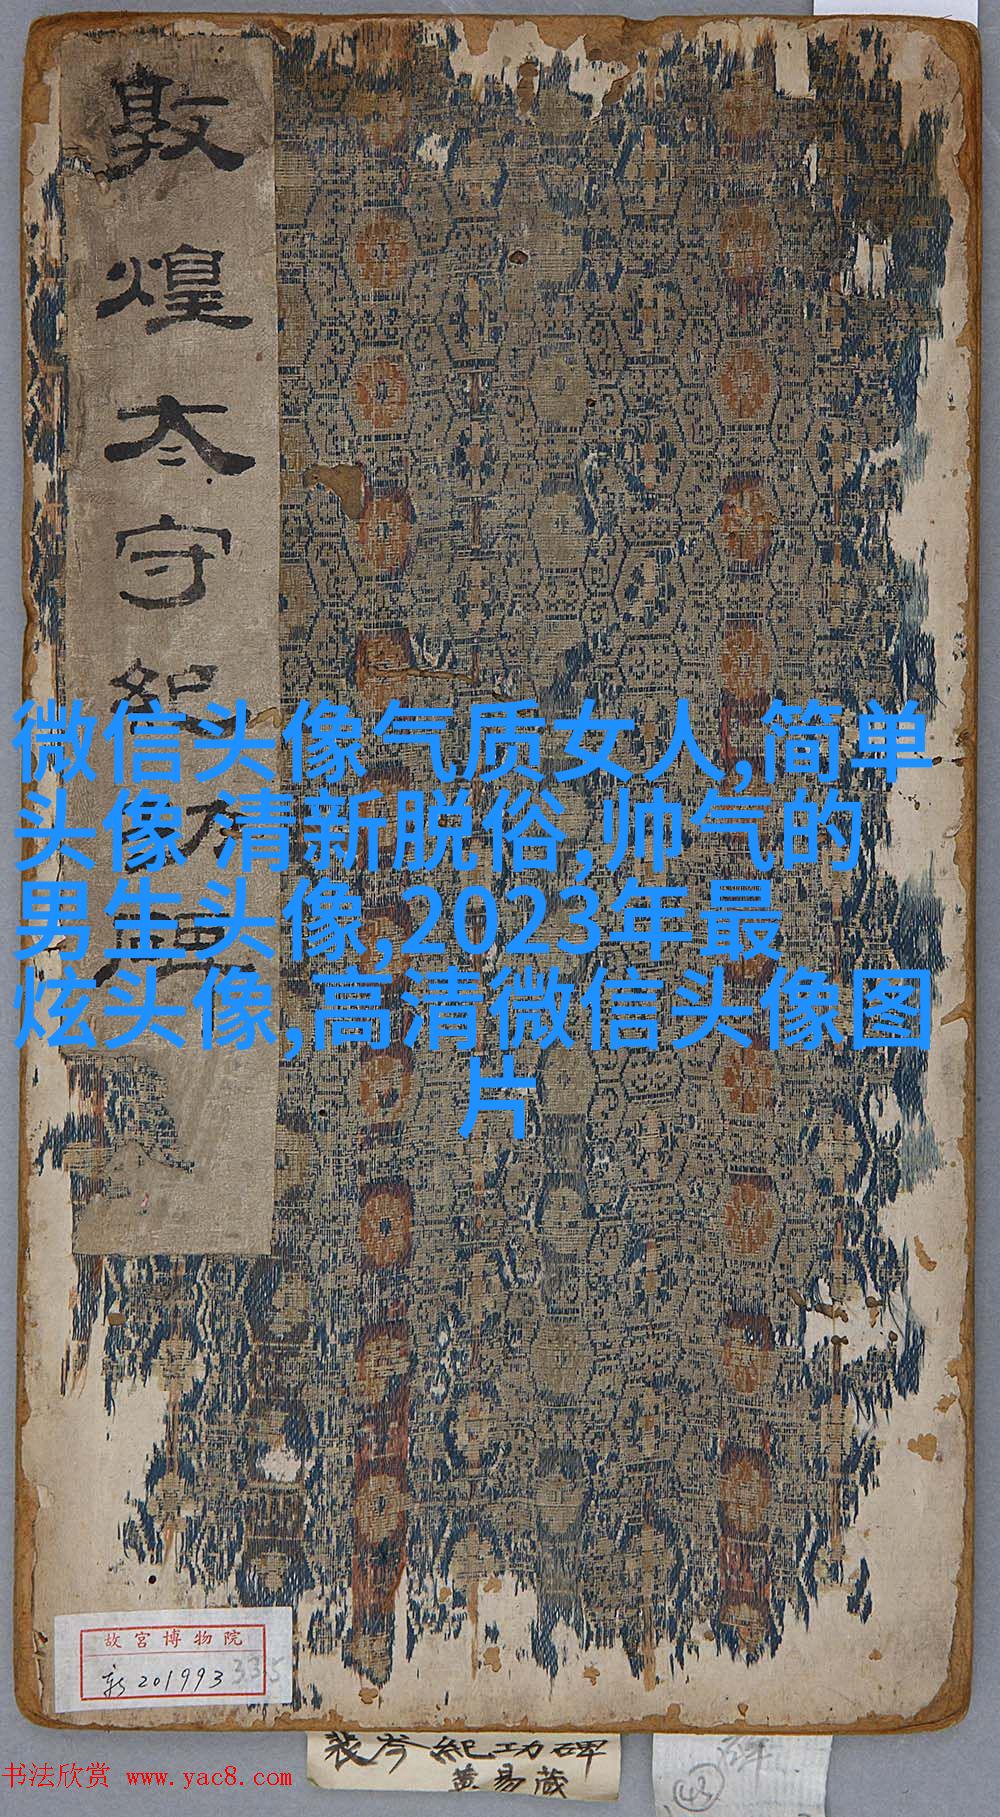 敦煌太守紀功碑
微信头像气质女人,简单
头像 清新脱俗,帅气的
男生头像,2023年最
炫头像,高清微信头像图
片
故宫博物院
新201993
335
裴岑紀功碑
黄易藏
书法欣赏 www.yac8.com
43